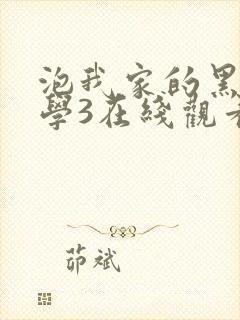 泡我家的黑
學3在綫觀看
茆斌